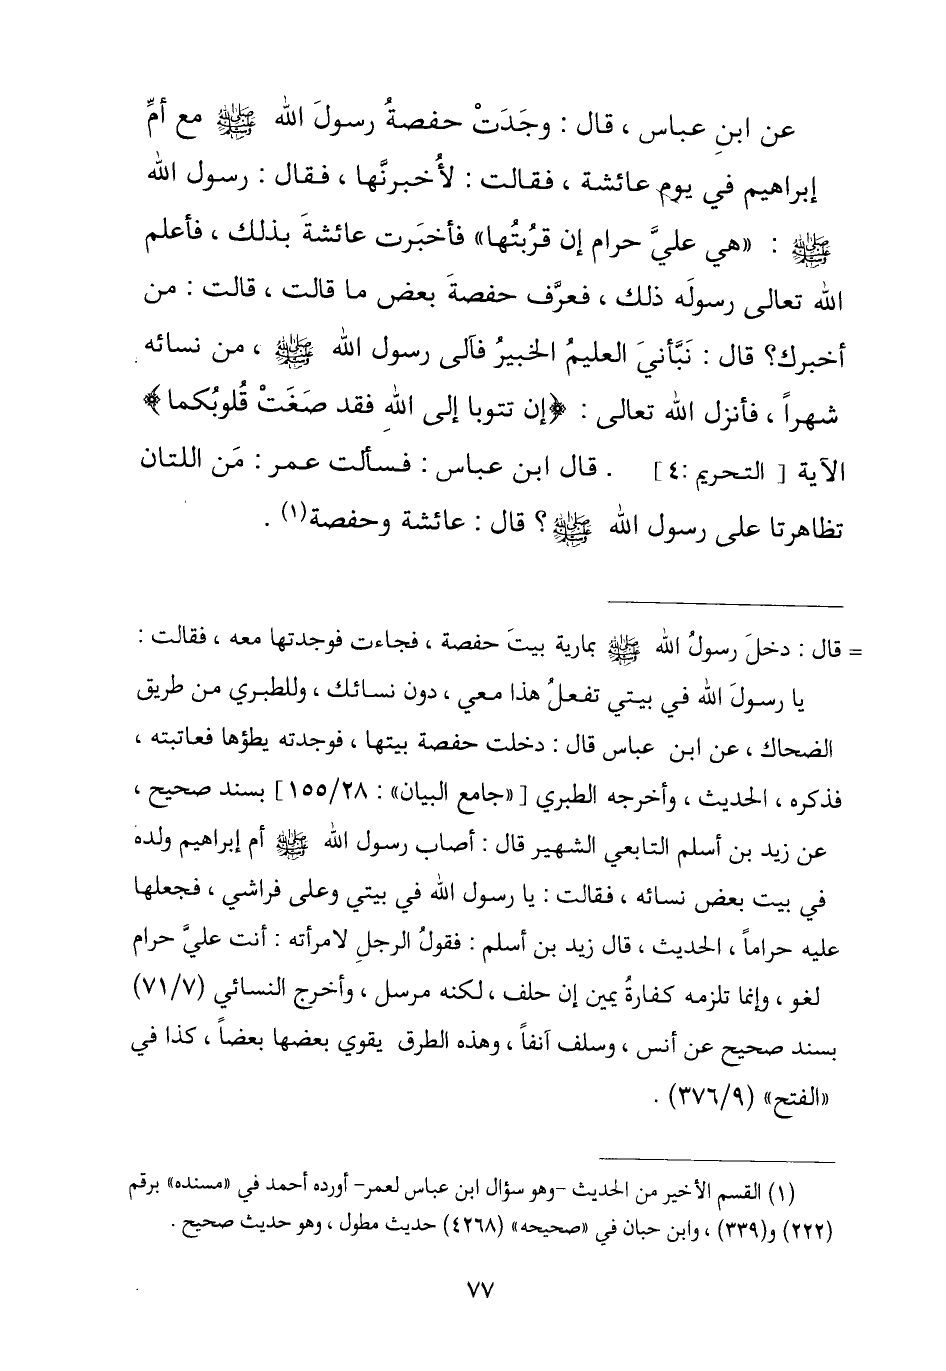 عن ابنِ عباس ، قال : وجَدَتْ حفصةُ رسولَ الله ﷺ مع أمِّ
إبراهيم في يوم عائشة ، فقالت : لأُخبرنَّها ، فقال : رسول الله
ﷺ : «هي عليَّ حرام إن قرُبتُها» فأخبَرت عائشةَ بذلك ، فأعلم
الله تعالى رسولَه ذلك ، فعرَّف حفصةَ بعض ما قالت ، قالت : من
أخبرك؟ قال : نَبَّأنيَ العليمُ الخبيرُ فآلى رسول الله ﷺ ، من نسائه
شهراً ، فأنزل الله تعالى : ﴿إن تتوبا إلى اللهِ فقد صَغَتْ قُلوبُكما﴾
الآية [ التحريم :٤ ] . قال ابن عباس : فسألت عمر : مَن اللتان
تظاهرتا على رسول الله ﷺ ؟ قال : عائشة وحفصة(١) .
= قال : دخلَ رسولُ الله ﷺ بمارية بيتَ حفصة ، فجاءت فوجدتها معه ، فقالت :
يا رسولَ الله في بيتي تفعلُ هذا معي ، دون نسائك ، وللطبري من طريق
الضحاك ، عن ابن عباس قال : دخلت حفصة بيتها ، فوجدته يطؤها فعاتبته ،
فذكره ، الحديث ، وأخرجه الطبري [ «جامع البيان» : ١٥٥/٢٨ ] بسند صحيح ،
عن زيد بن أسلم التابعي الشهير قال : أصاب رسول الله ﷺ أم إبراهيم ولده
في بيت بعض نسائه ، فقالت : يا رسول الله في بيتي وعلى فراشي ، فجعلها
عليه حراماً ، الحديث ، قال زيد بن أسلم : فقولُ الرجلِ لامرأته : أنت عليَّ حرام
لغو ، وإنما تلزمه كفارةُ يمين إن حلف ، لكنه مرسل ، وأخرج النسائي (٧١/٧)
بسند صحيح عن أنس ، وسلف آنفاً ، وهذه الطرق يقوي بعضها بعضاً ، كذا في
«الفتح» (٣٧٦/٩) .
(١) القسم الأخير من الحديث -وهو سؤال ابن عباس لعمر- أورده أحمد في «مسنده» برقم
(٢٢٢) و(٣٣٩) ، وابن حبان في «صحيحه» (٤٢٦٨) حديث مطول ، وهو حديث صحيح .
٧٧